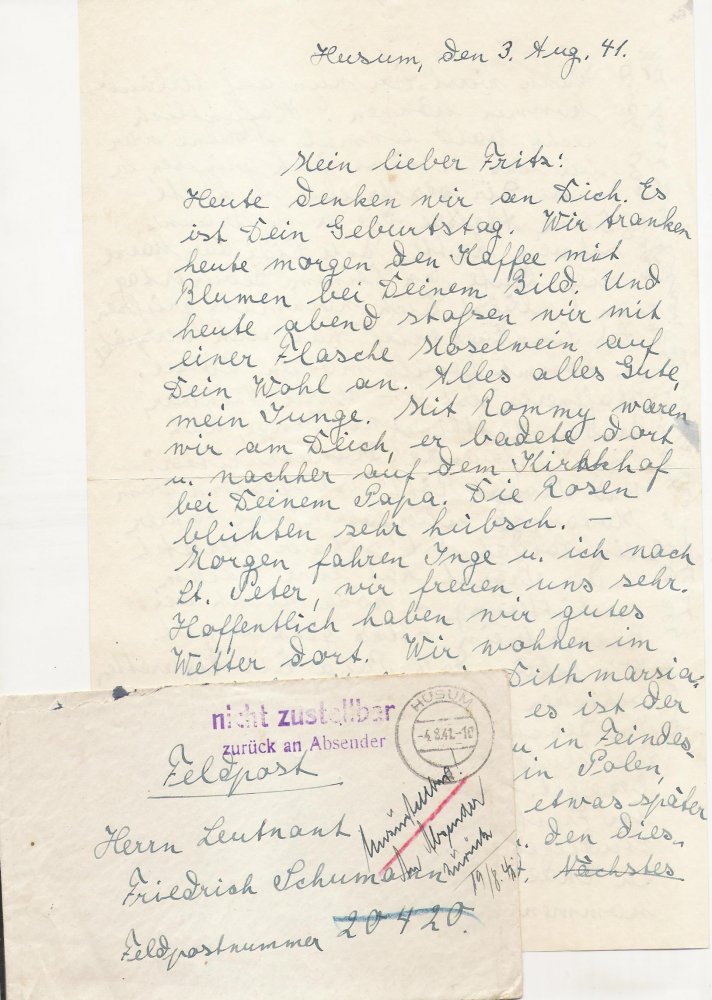 Husum, den 3. Aug. 41.
Mein lieber Fritz:
Heute denken wir an Dich. Es
ist Dein Geburtstag. Wir tranken
heute morgen den Kaffee mit
Blumen bei Deinem Bild. Und
heute abend stoßen wir mit
einer Flasche Moselwein auf
Dein Wohl an. Alles alles Gute,
mein Junge. Mit Rommy waren
wir am Deich, er badete dort
u. nachher auf dem Kirchhof
bei Deinem Papa. Die Rosen
blühten sehr hübsch. —
Morgen fahren Inge u. ich nach
St. Peter, wir freuen uns sehr.
Hoffentlich haben wir gutes
Wetter dort. Wir wohnen im
Dithmarsia.
es ist der
in Feindes-
in Polen,
etwas später
den dies.
Nächstes
nicht zustellbar
zurück an Absender
HUSUM
-4.8.41.-10
Feldpost
Herrn Leutnant
Friedrich Schumann
Feldpostnummer 20420.
an Absender
zurück
19/8.41.